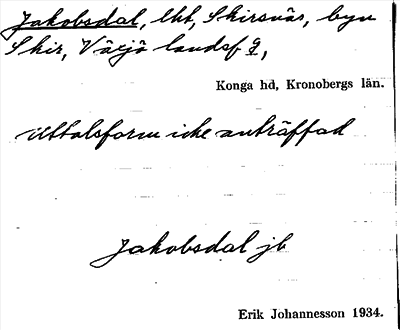 Jakobsdal, lht, Skirsnäs, byn
Skir, Växjö landsf g,
Konga hd, Kronobergs län.
Uttalsform icke anträffad
Jakobsdal jb
Erik Johannesson 1934.